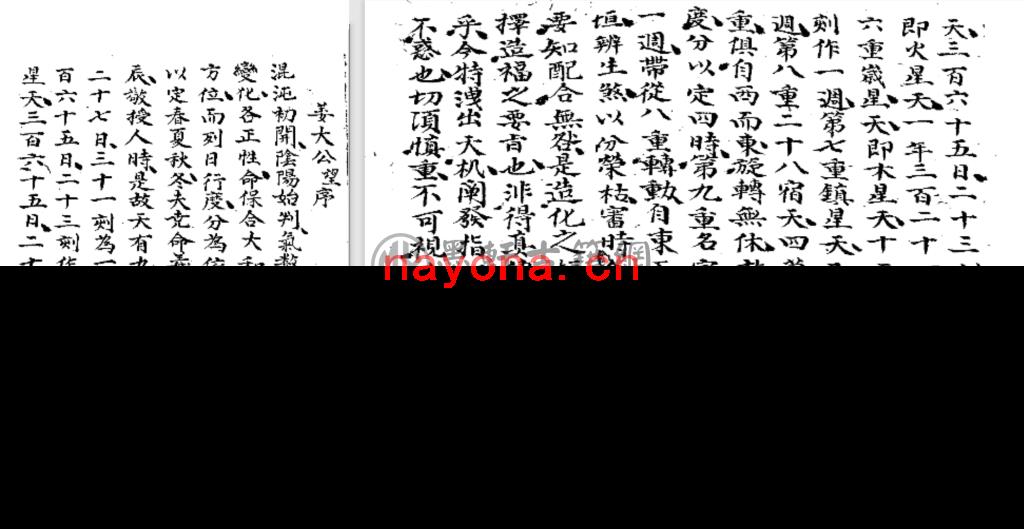 姜大公望序
混沌初開陰陽始判氣数
變化各正性命保合大
方位而列日行度分為
以定春夏秋冬夫堯命
辰敬授人時是故天有
二十七日三十一刻為一
百六十五日二十三刻
星天三百六十五日二
天三百六十五日二十三
即火星天一年三百二十
六重嵗星天即木星天十
刻作一週第七重鎮星天
週第八重二十八宿天四
重俱自西而東旋轉無休
度分以定四時第九重名
一週帶從八重轉動自東
垣辨生煞以分榮枯審時
要知配合無咎是造化之
擇造福之要旨也非得真
乎今特洩出天机闡發指
不惑也切須慎重不可視
nayona.cn